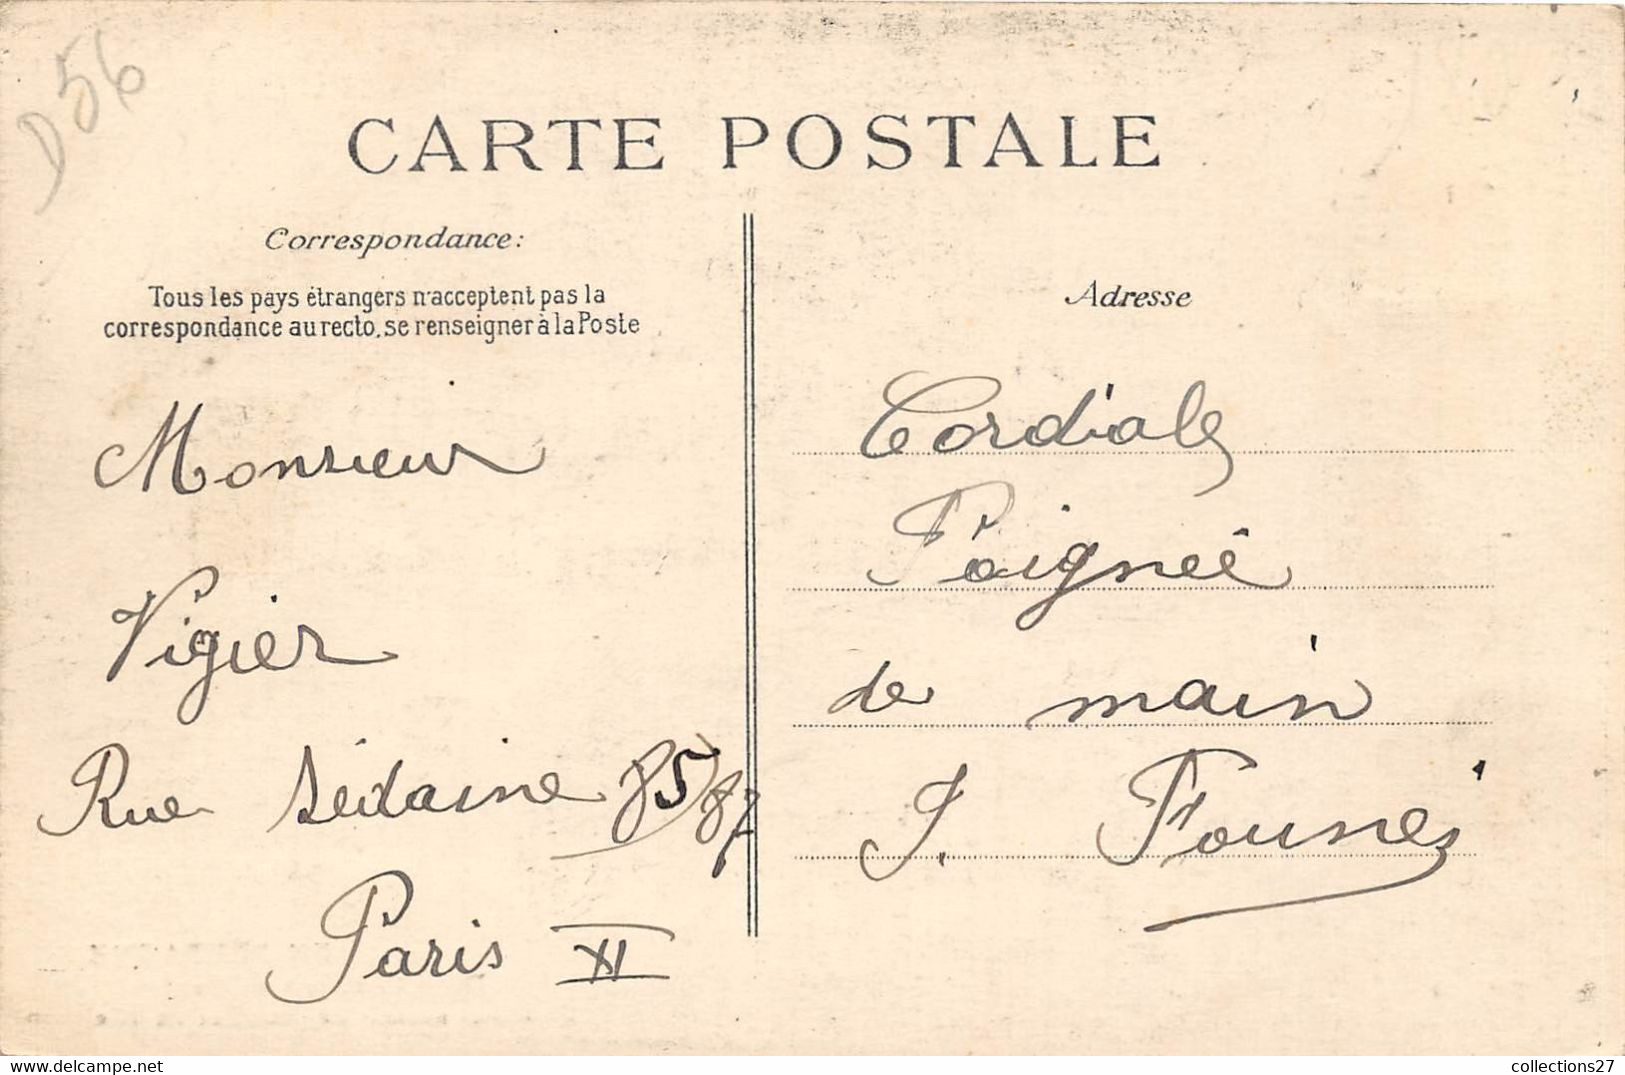 D56
CARTE POSTALE
Correspondance:
Tous les pays étrangers n'acceptent pas la
correspondance au recto, se renseigner à la Poste
Monsieur
Vigier
Rue Sédaine 85/87
Paris XI
Adresse
Cordiale
Poignée
de main
J.
collections27